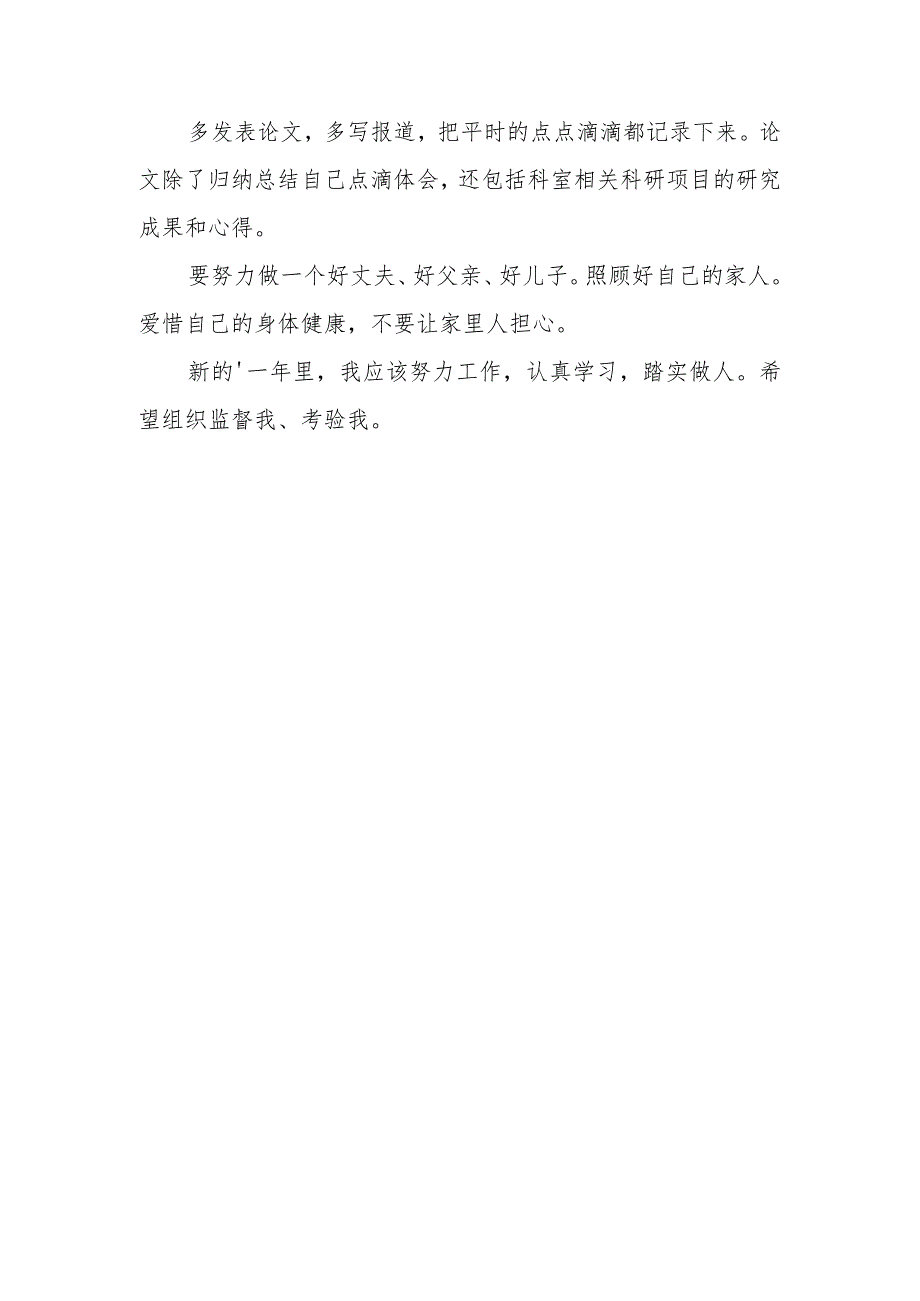 多发表论文，多写报道，把平时的点点滴滴都记录下来。论
文除了归纳总结自己点滴体会，还包括科室相关科研项目的研究
成果和心得。
要努力做一个好丈夫、好父亲、好儿子。照顾好自己的家人。
爱惜自己的身体健康，不要让家里人担心。
新的'一年里，我应该努力工作，认真学习，踏实做人。希
望组织监督我、考验我。